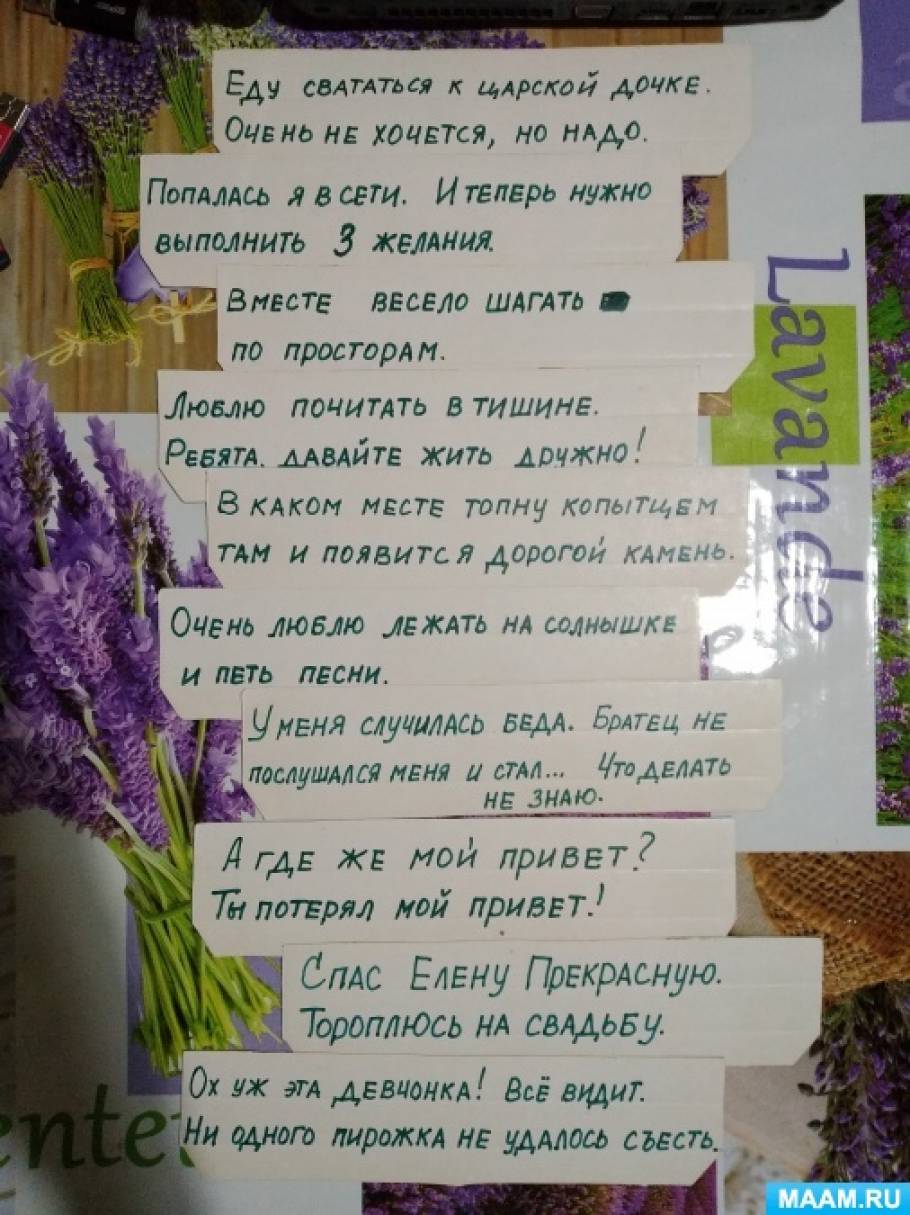 Еду свататься к царской дочке.
Очень не хочется, но надо.
Попалась я в сети. И теперь нужно
выполнить 3 желания.
Вместе весело шагать
по просторам.
Люблю почитать в тишине.
Ребята, давайте жить дружно!
В каком месте топну копытцем
там и появится дорогой камень.
Очень люблю лежать на солнышке
и петь песни.
У меня случилась беда. Братец не
послушался меня и стал... Что делать
не знаю.
А где же мой привет?
Ты потерял мой привет!
Спас Елену Прекрасную.
Тороплюсь на свадьбу.
Ох уж эта девчонка! Всё видит.
Ни одного пирожка не удалось съесть.
Lavande
MAAM.RU